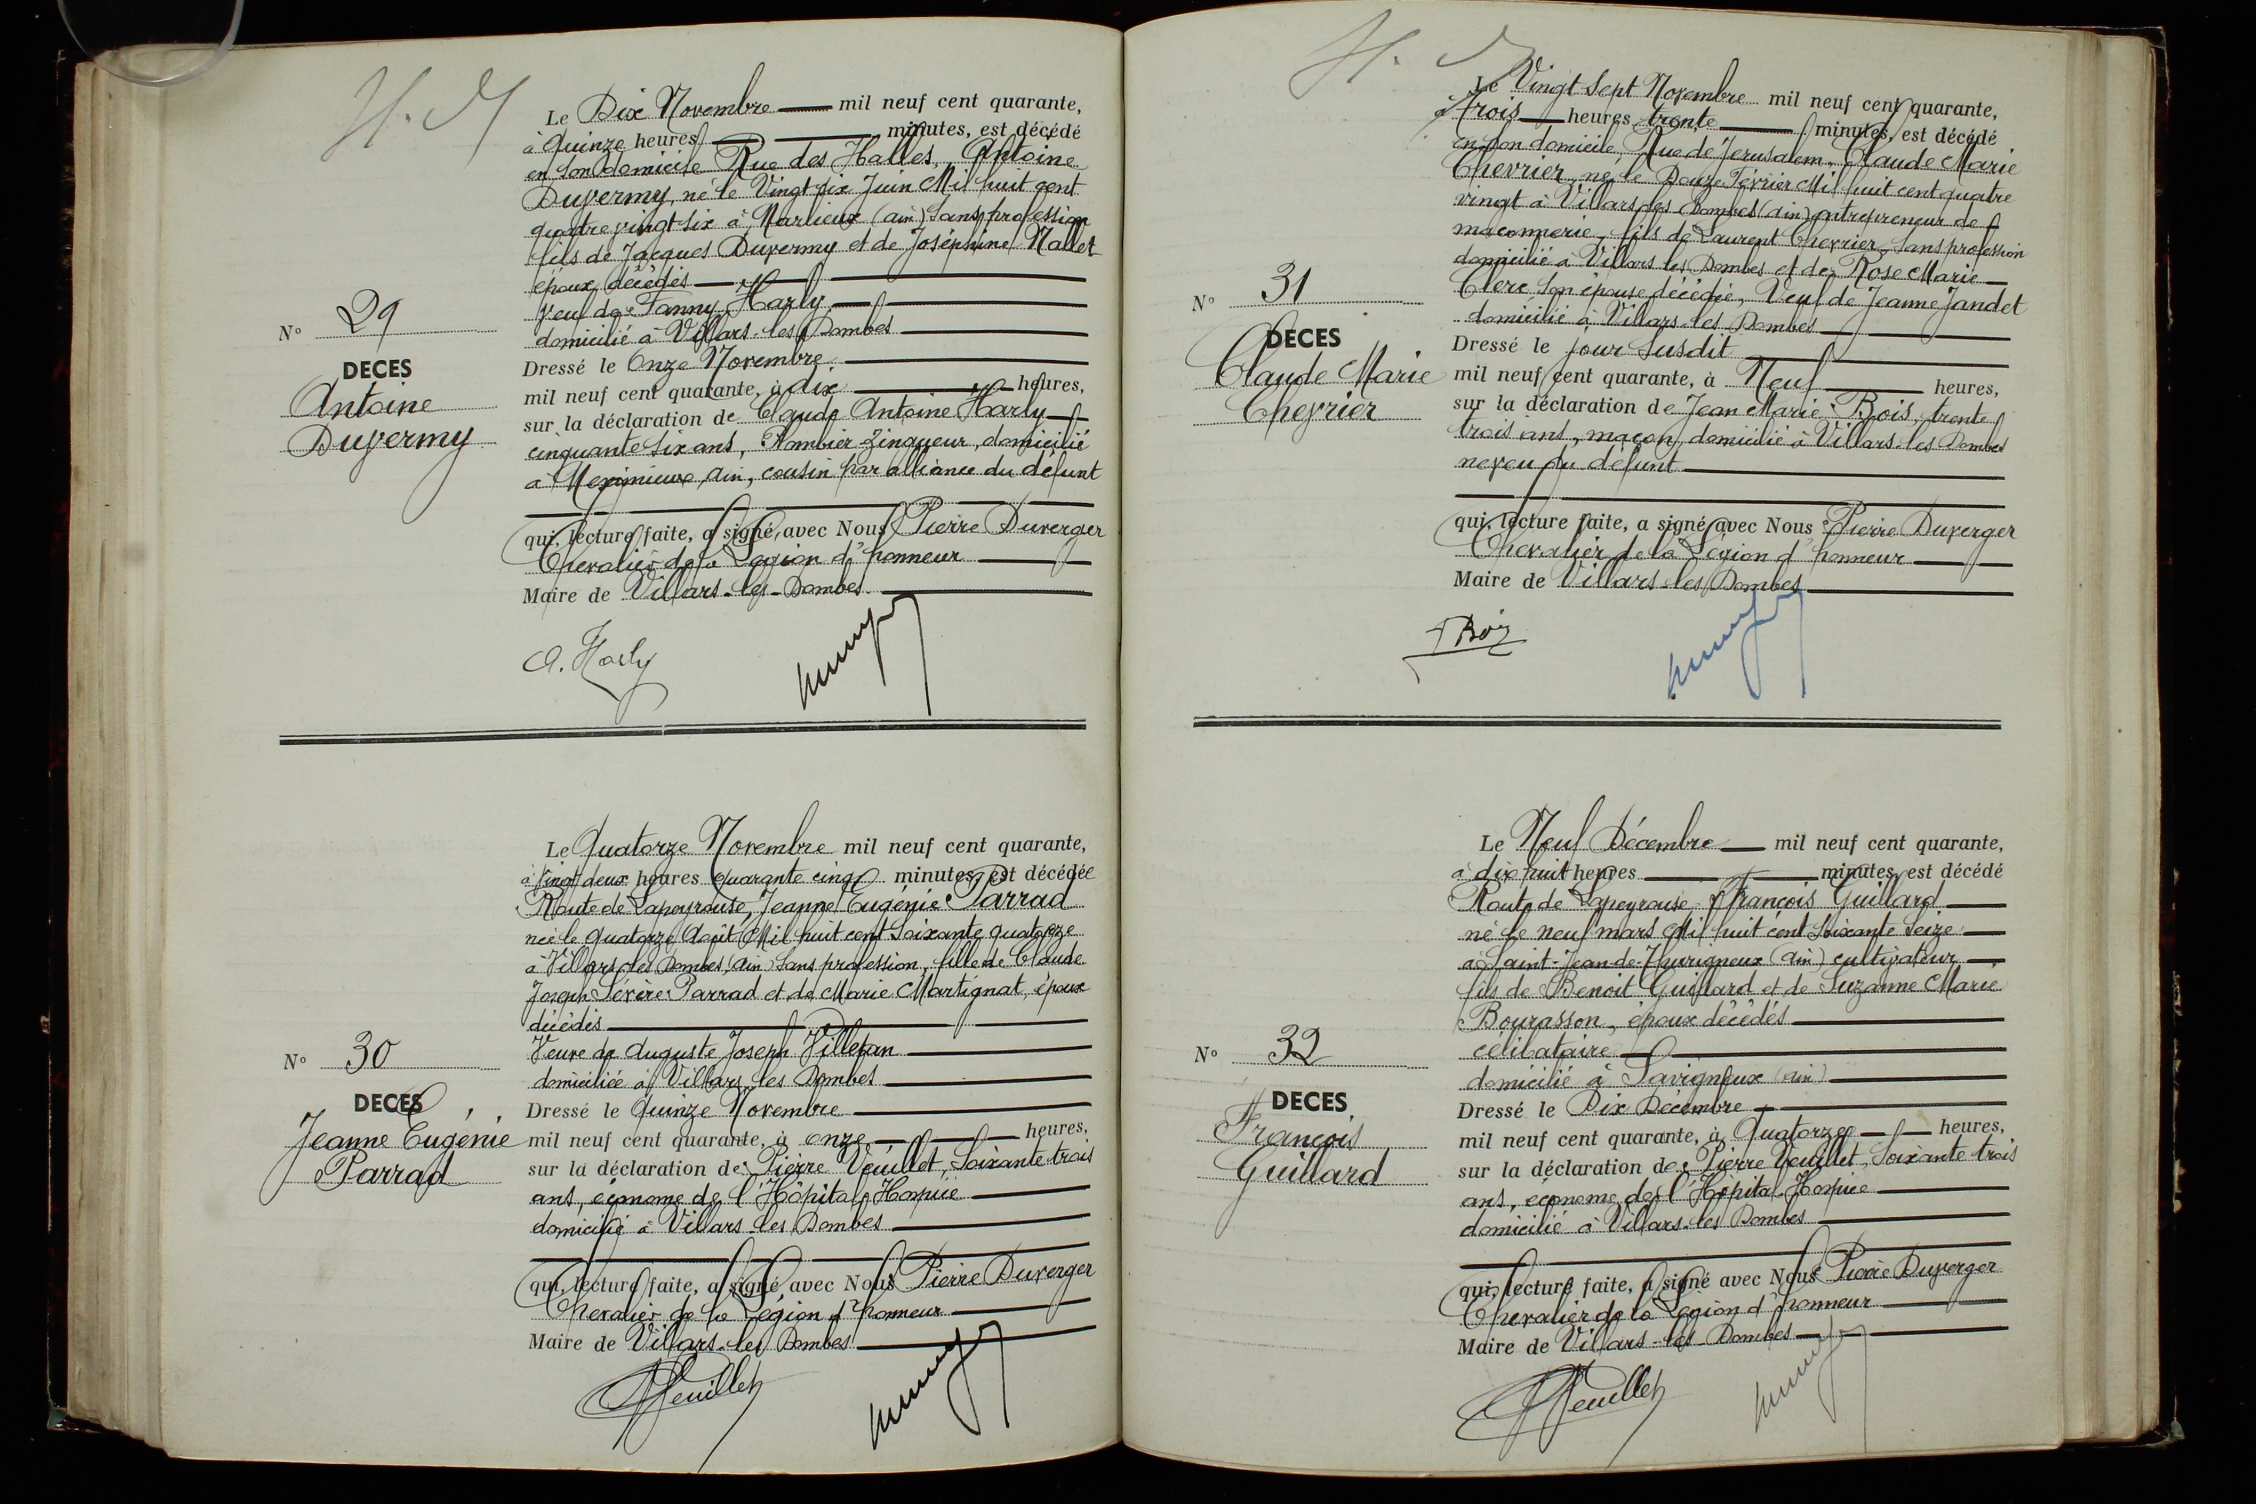 H. M
Le Dix Novembre mil neuf cent quarante,
à quinze heures minutes, est décédé
en son domicile Rue des Halles, Antoine
Duvermy, né le Vingt six Juin Mil huit cent
quatre vingt six à Marlieux (ain) Sans profession
fils de Jacques Duvermy et de Joséphine Nallet
époux décédés
Veuf de Fanny Harly
domicilié à Villars-les-Dombes
Dressé le Onze Novembre
mil neuf cent quarante, à dix heures,
sur la déclaration de Claude Antoine Harly
cinquante six ans, Plombier Zingueur, domicilié
à Meximieux, Ain, cousin par alliance du défunt
qui, lecture faite, a signé avec Nous Pierre Duverger
Chevalier de la Légion d'honneur
Maire de Villars-les-Dombes
A. Harly
N° 29
DECES
Antoine
Duvermy
Le Quatorze Novembre mil neuf cent quarante,
à Vingt deux heures quarante cinq minutes, est décédée
Route de Lapeyrouse, Jeanne Eugénie Parrad
née le quatorze Août Mil huit cent Soixante quatorze
à Villars les Dombes (ain) Sans profession, fille de Claude
Joseph Sévère Parrad et de Marie Martignat, époux
décédés
Veuve de Auguste Joseph Villetan
domiciliée à Villars les Dombes
Dressé le quinze Novembre
mil neuf cent quarante, à onze heures,
sur la déclaration de Pierre Veuillet, Soixante trois
ans, économe de l'Hôpital-Hospice
domicilié à Villars-les Dombes
qui, lecture faite, a signé avec Nous Pierre Duverger
Chevalier de la Légion d'honneur
Maire de Villars-les Dombes
Veuillet
N° 30
DECES
Jeanne Eugénie
Parrad
H. M
Le Vingt Sept Novembre mil neuf cent quarante,
à trois heures trente minutes, est décédé
en son domicile, Rue de Jerusalem, Claude Marie
Chevrier, né le Douze Février Mil huit cent quatre
vingt à Villars les Dombes (ain) entrepreneur de
maçonnerie, fils de Laurent Chevrier, Sans profession
domicilié à Villars les Dombes et de Rose Marie
Clerc Son épouse décédée, Veuf de Jeanne Jandet
domicilié à Villars-les Dombes
Dressé le jour Susdit
mil neuf cent quarante, à Neuf heures,
sur la déclaration de Jean Marie Bois, trente
trois ans, maçon, domicilié à Villars-les Dombes
neveu du défunt
qui, lecture faite, a signé avec Nous Pierre Duverger
Chevalier de la Légion d'honneur
Maire de Villars-les Dombes
Bois
N° 31
DECES
Claude Marie
Chevrier
Le Neuf Décembre mil neuf cent quarante,
à dix huit heures minutes, est décédé
Route de Lapeyrouse, François Guillard
né le neuf mars Mil huit cent Soixante Seize
à Saint-Jean-de-Thurigneux (ain) cultivateur
fils de Benoit Guillard et de Suzanne Marie
Bourasson, époux décédés
célibataire
domicilié à Savigneux (ain)
Dressé le Dix Décembre
mil neuf cent quarante, à Quatorze heures,
sur la déclaration de Pierre Veuillet, Soixante trois
ans, économe de l'Hôpital-Hospice
domicilié à Villars-les Dombes
qui, lecture faite, a signé avec Nous Pierre Duverger
Chevalier de la Légion d'honneur
Maire de Villars-les-Dombes
Veuillet
N° 32
DECES
François
Guillard